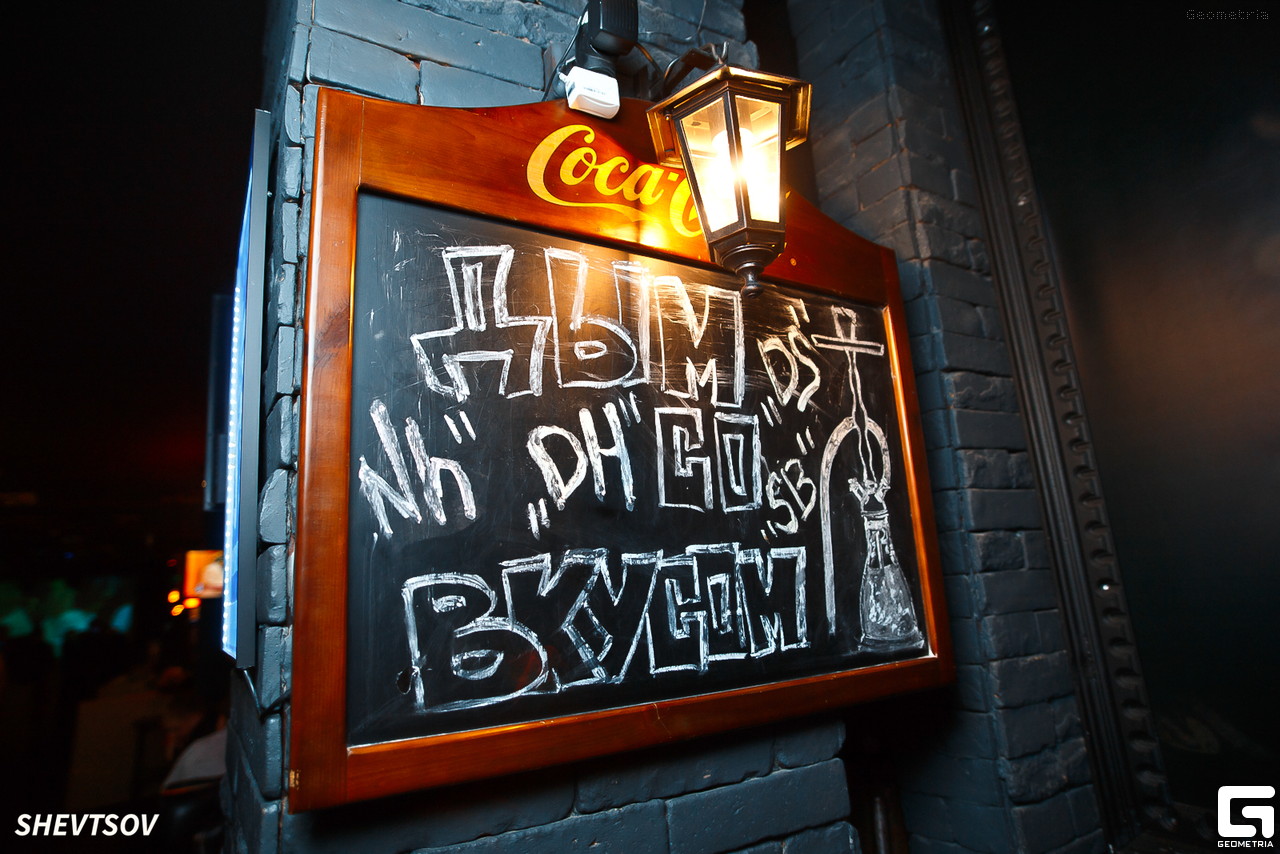 Geometria
Coca-C
ДЫМ
м "DS"
Nh" "DH" СО "SB"
ВКУСОМ
SHEVTSOV
GEOMETRIA